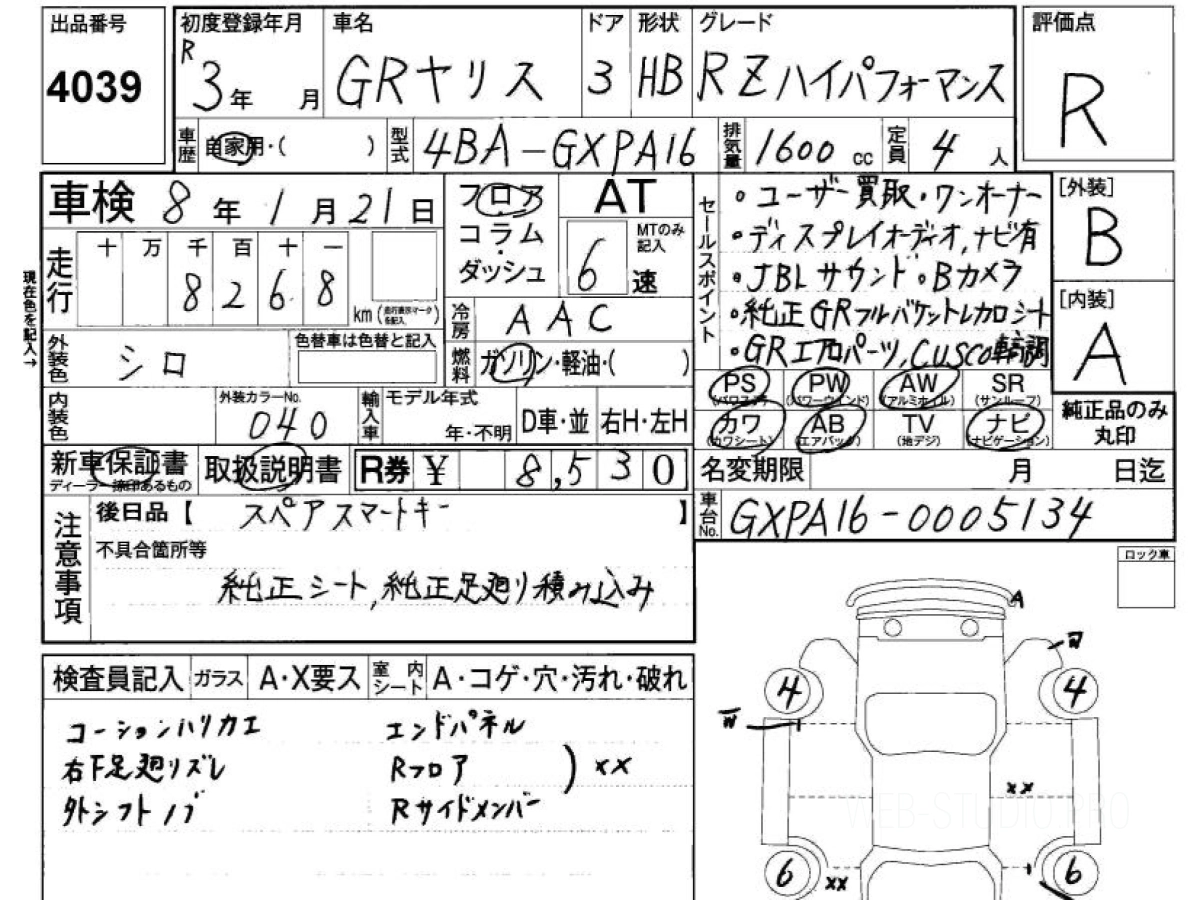 出品番号
4039
初度登録年月
R 3年 月
車名
GRヤリス
ドア
3
形状
HB
グレード
RZ ハイパフォーマンス
評価点
R
車歴
自家用・( )
型式
4BA-GXPA16
排気量
1600 cc
定員
4 人
車検 8年 1月 21日
フロア
コラム
・
ダッシュ
AT
MTのみ記入
6速
セールスポイント
・ユーザー買取・ワンオーナー
・ディスプレイオーディオ,ナビ有
・JBLサウンド・Bカメラ
・純正GRフルバケットレカロシート
・GRエアロパーツ,CUSCO車高調
[外装]
B
[内装]
A
現在色を記入→
走行
十 万 千 百 十 一
8 2 6 8
km (走行表示マークを記入)
冷房
AAC
燃料
ガソリン・軽油・( )
外装色
シロ
色替車は色替と記入
内装色
外装カラーNo.
040
輸入車
モデル年式
年・不明
D車・並
右H・左H
PS (パワステ)
PW (パワーウインド)
AW (アルミホイル)
SR (サンルーフ)
カワ (カワシート)
AB (エアバック)
TV (地デジ)
ナビ (ナビゲーション)
純正品のみ丸印
新車保証書
ディーラー捺印あるもの
取扱説明書
R券 ¥ 8,530
名変期限 月 日迄
車台No.
GXPA16-0005134
注意事項
後日品【 スペアスマートキー 】
不具合箇所等
純正シート,純正足廻り積み込み
ロック車
検査員記入
ガラス
A・X要ス
室内シート
A・コゲ・穴・汚れ・破れ
コーションハリカエ
右下足廻りズレ
外シフトノブ
エンドパネル
Rフロア
Rサイドメンバー
) XX
A
4
4
W
XX
6
XX
6
WEB-STUDIO.PRO